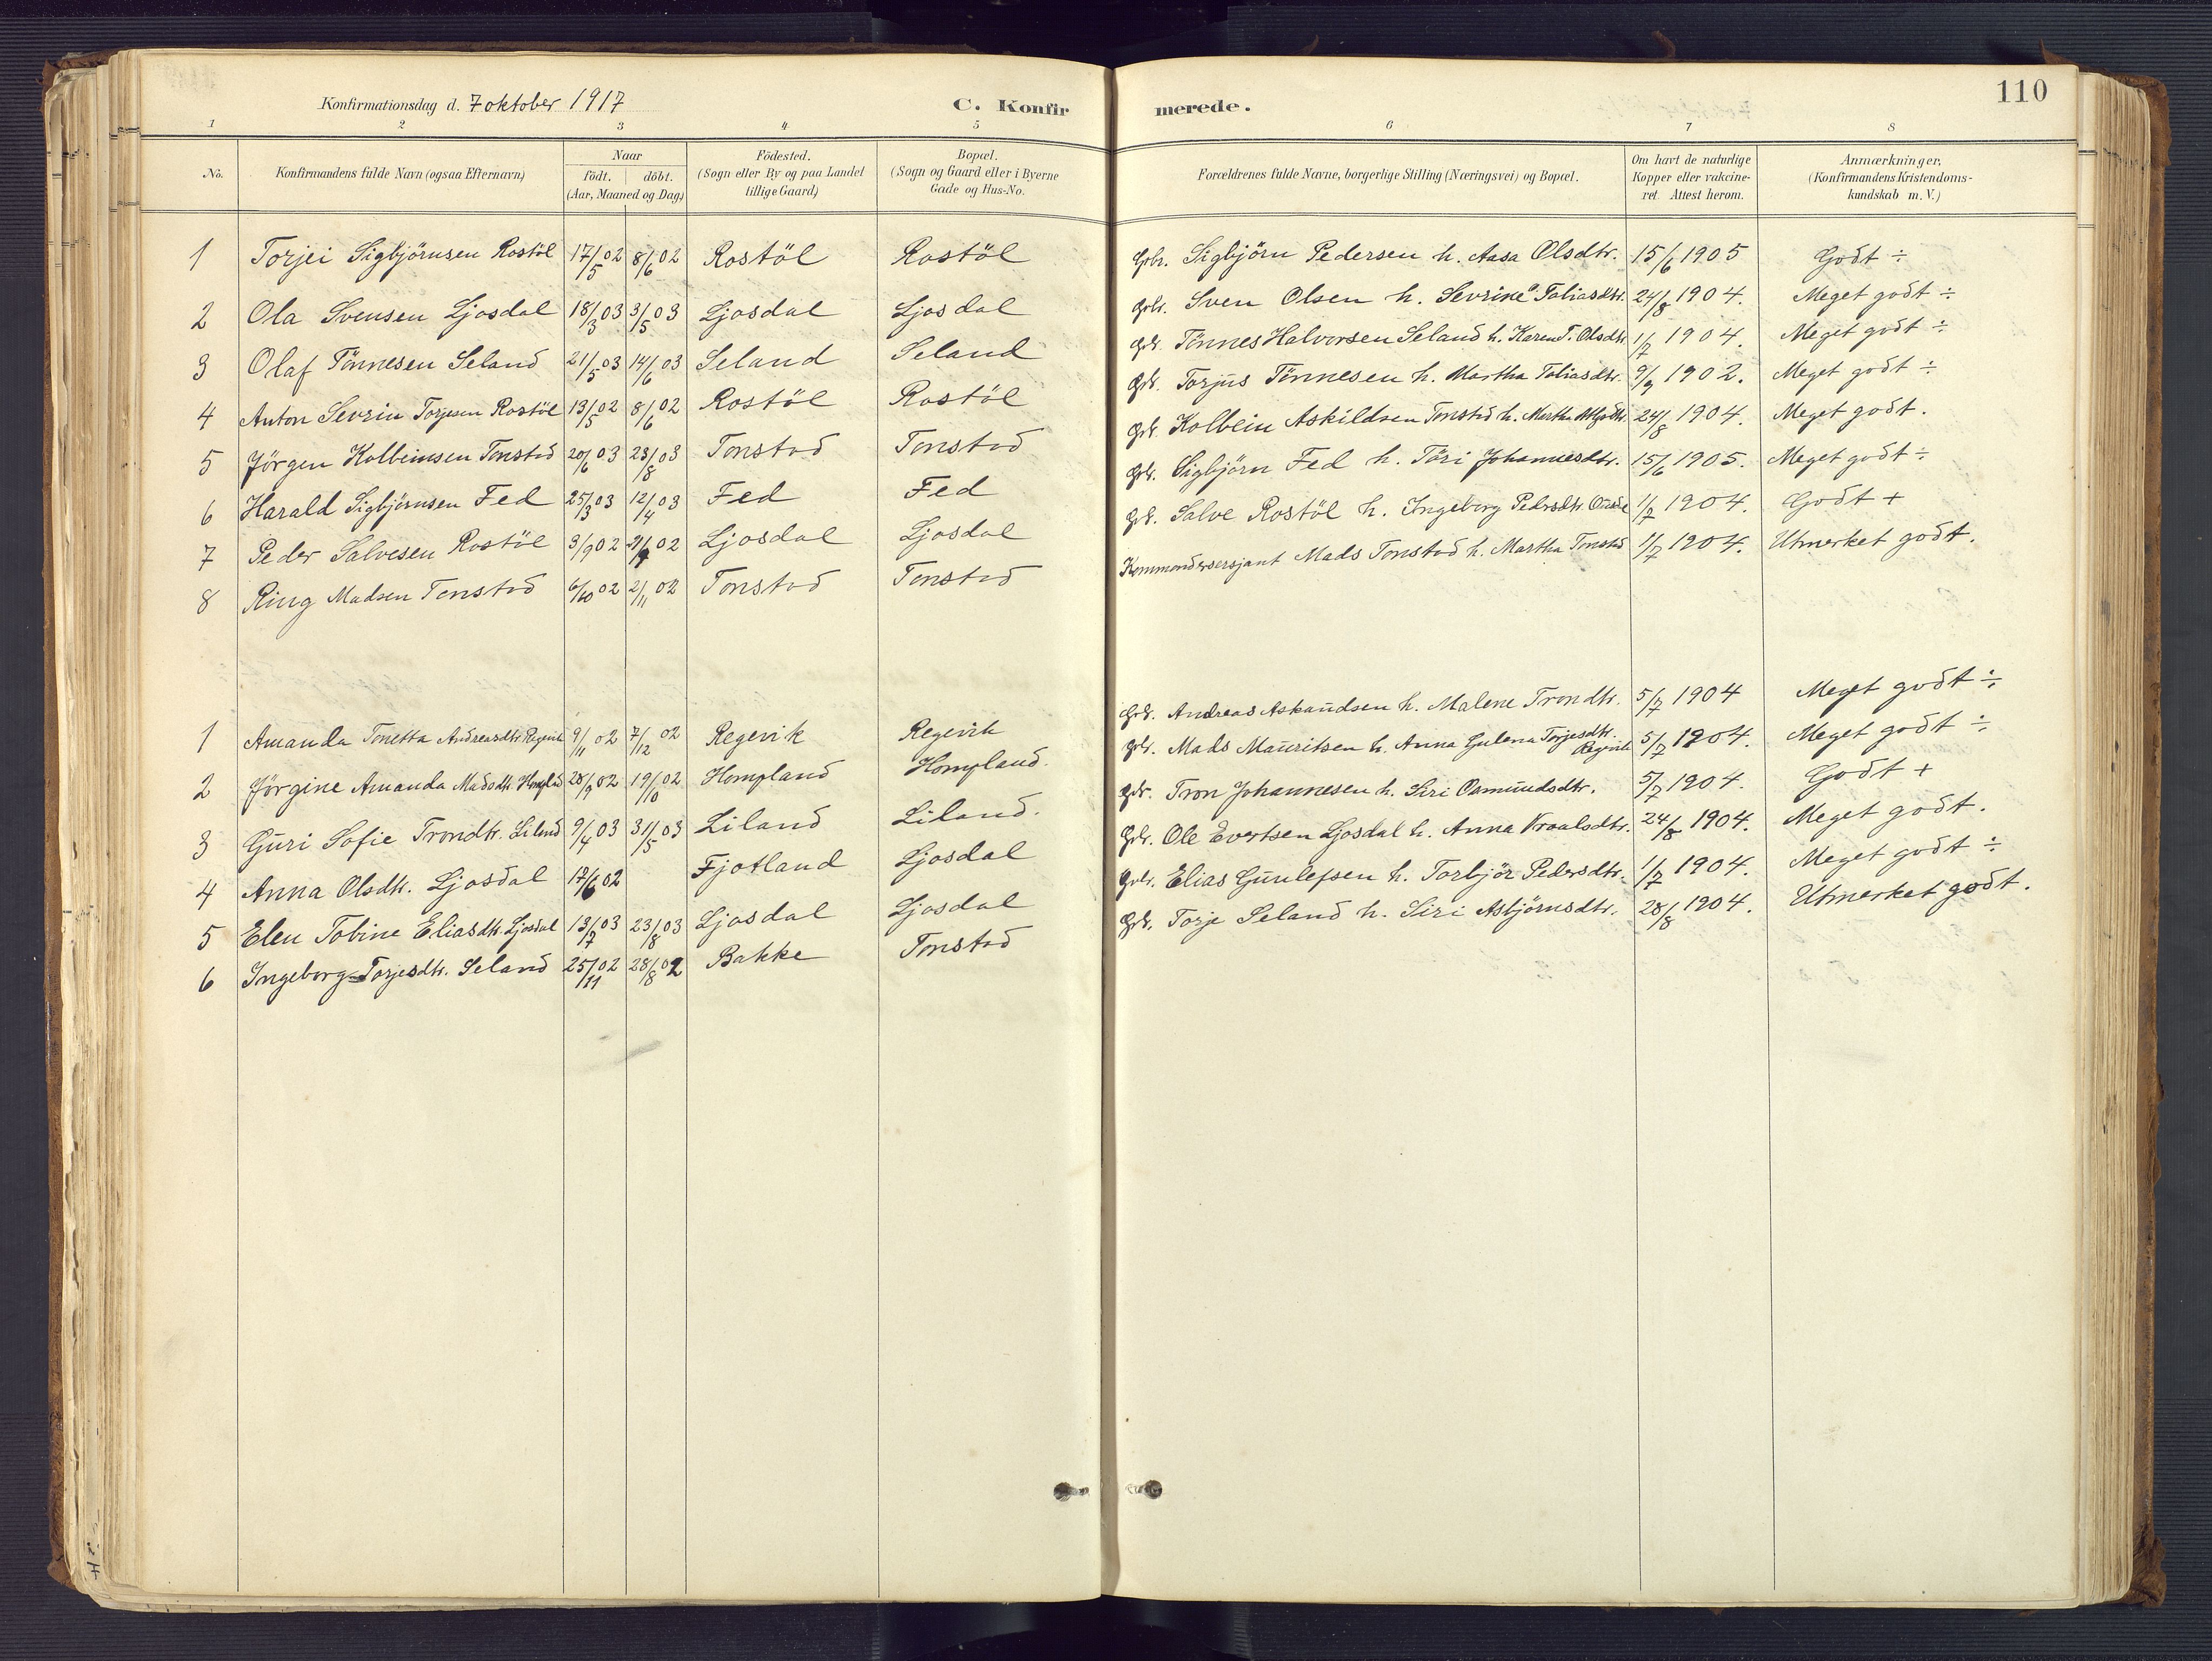 Konfirmationsdag d. 7 oktober 1917 C. Konfirmerede. 110
1 2 3 4 5 6 7 8
No. Konfirmandens fulde Navn (ogsaa Efternavn) Naar födt. döbt. (Aar, Maaned og Dag) Födested. (Sogn eller By og paa Landet tillige Gaard) Bopæl. (Sogn og Gaard eller i Byerne Gade og Hus-No. Forældrenes fulde Navne, borgerlige Stilling (Næringsvei) og Bopæl. Om havt de naturlige Kopper eller vakcineret. Attest herom. Anmærkninger, (Konfirmandens Kristendomskundskab m. V.)
1 Torjei Sigbjörnsen Rostöl 17/5 02 8/6 02 Rostöl Rostöl Gbr. Sigbjörn Pedersen h. Aasa Olsdtr. 15/6 1905 Godt ÷
2 Ola Svensen Ljosdal 18/3 03 3/5 03 Ljosdal Ljosdal Gbr. Sven Olsen h. Sevrine Tobiasdtr. 24/8 1904. Meget godt ÷
3 Olaf Tönnesen Seland 21/5 03 14/6 03 Seland Seland Gbr. Tönnes Halvorsen Seland h. Karen T. Olsdtr. 1/7 1904. Meget godt ÷
4 Anton Sevrin Torjusen Rostöl 19/5 02 8/6 02 Rostöl Rostöl Gbr. Torjus Tönnesen h. Martha Tobiasdtr. 9/9 1902. Meget godt ÷
5 Jörgen Kolbeinsen Tonstad 20/6 03 23/8 03 Tonstad Tonstad Gbr. Kolbein Askildsen Tonstad h. Martha 24/8 1904. Meget godt.
6 Harald Sigbjörnsen Fed 25/3 03 12/4 03 Fed Fed Gbr. Sigbjörn Fed h. Töri Johannesdtr. 15/6 1905. Meget godt ÷
7 Peder Salvesen Rostöl 3/9 02 21/9 02 Ljosdal Ljosdal Gbr. Salve Rostöl h. Ingeborg Pedrsdtr. 1/7 1904. Godt +
8 Ring Madsen Tonstad 6/10 02 2/11 02 Tonstad Tonstad Kommandersersjant Mads Tonstad h. Martha Tonstad 1/7 1904. Utmerket godt.
1 Amanda Tonetta Andreasdtr. Regevik 9/11 02 7/12 02 Regevik Regevik Gbr. Andreas Askaudsen h. Malene Trondtr. 5/7 1904 Meget godt ÷
2 Jörgine Amanda Madsdtr. Hompland 28/9 02 19/10 02 Hompland Hompland. Gbr. Mads Mauritsen h. Anna Gulena Torjesdtr. Regevik 5/7 1904. Meget godt ÷
3 Guri Sofie Trondtr. Liland 9/4 03 31/5 03 Liland Liland. Gbr. Tron Johannesen h. Siri Osmundsdtr. 5/7 1904. Godt +
4 Anna Olsdtr. Ljosdal 17/6 02 Fjotland Ljosdal Gbr. Ole Evertsen Ljosdal h. Anna Kroalsdtr. 24/8 1904. Meget godt.
5 Elen Tobine Eliasdtr. Ljosdal 13/7 03 23/8 03 Ljosdal Ljosdal Gbr. Elias Gunlefsen h. Torbjör Pedersdtr. 1/7 1904. Meget godt ÷
6 Ingeborg Torjesdtr. Seland 25/11 02 28/8 02 Bakke Tonstad Gbr. Torje Seland h. Siri Asbjörnsdtr. 28/8 1904. Utmerket godt.